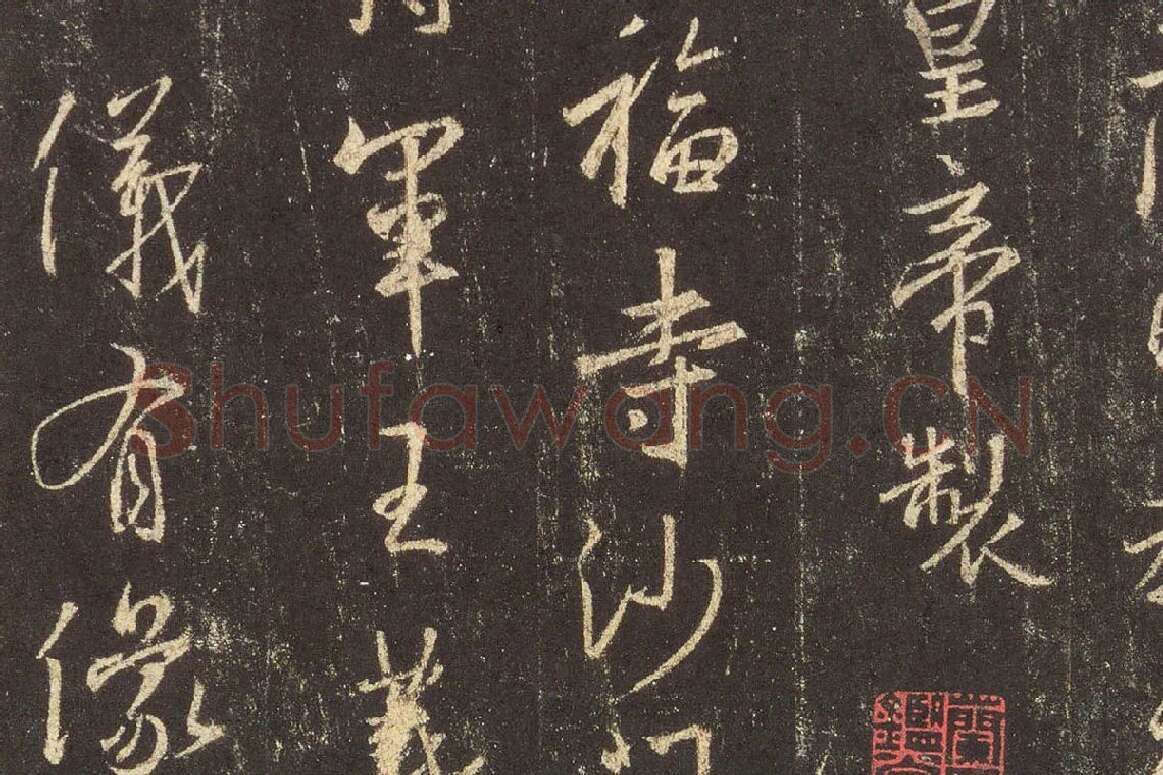 皇帝製
福寺沙門
軍王羲
儀有像
Shufawang.CN